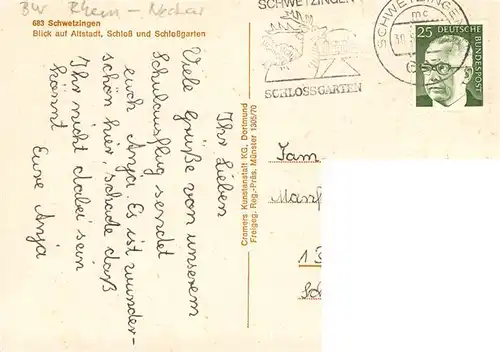 BW Rhein - Neckar
683 Schwetzingen
Blick auf Altstadt, Schloß und Schloßgarten
Ihr Lieben
Viele Grüße von unserem
Schulausflug sendet
euch Anja. Es ist wunder-
schön hier, schade daß
Ihr nicht dabei sein
könnt
Eure Anja
Cramers Kunstanstalt KG, Dortmund
Freigeg. Reg.-Präs. Münster 1305/70
SCHWETZINGEN
SCHLOSSGARTEN
SCHWETZINGEN
mc
25
DEUTSCHE
BUNDESPOST
Fam
1